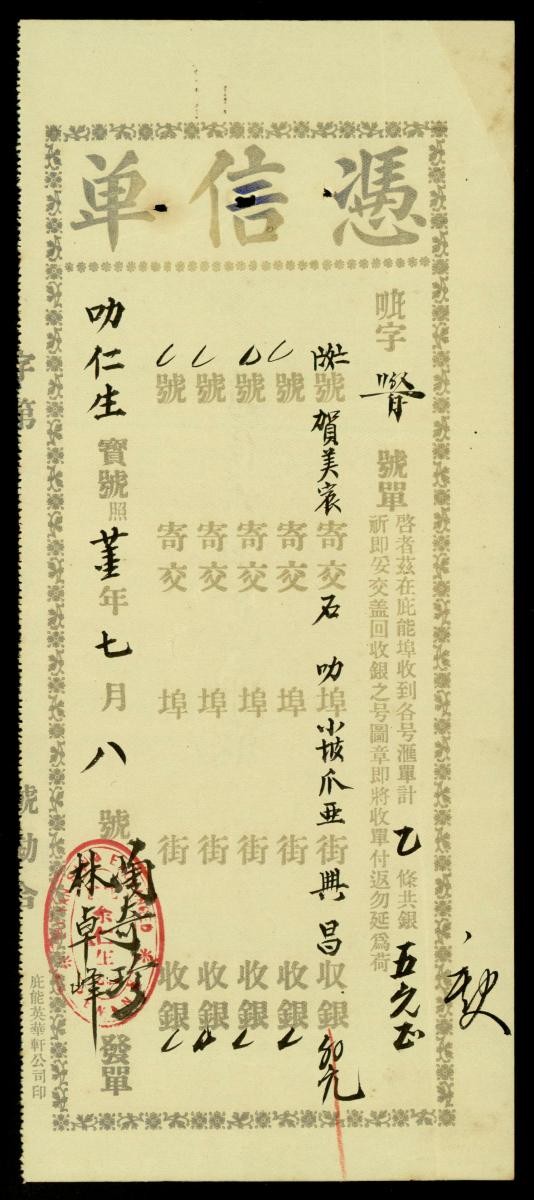 憑信单
字 號單
啓者茲在庇能埠收到各号滙單計乙條共銀五元正
祈即妥交盖回收銀之号圖章即將收單付返勿延爲荷
號賀美宸寄交石叻埠小坡爪亚街興昌收銀
號寄交埠街收銀
號寄交埠街收銀
號寄交埠街收銀
號寄交埠街收銀
叻仁生寳號照年七月八號發單
林卓峰
余仁生
庇能英華軒公司印
字第號勘合